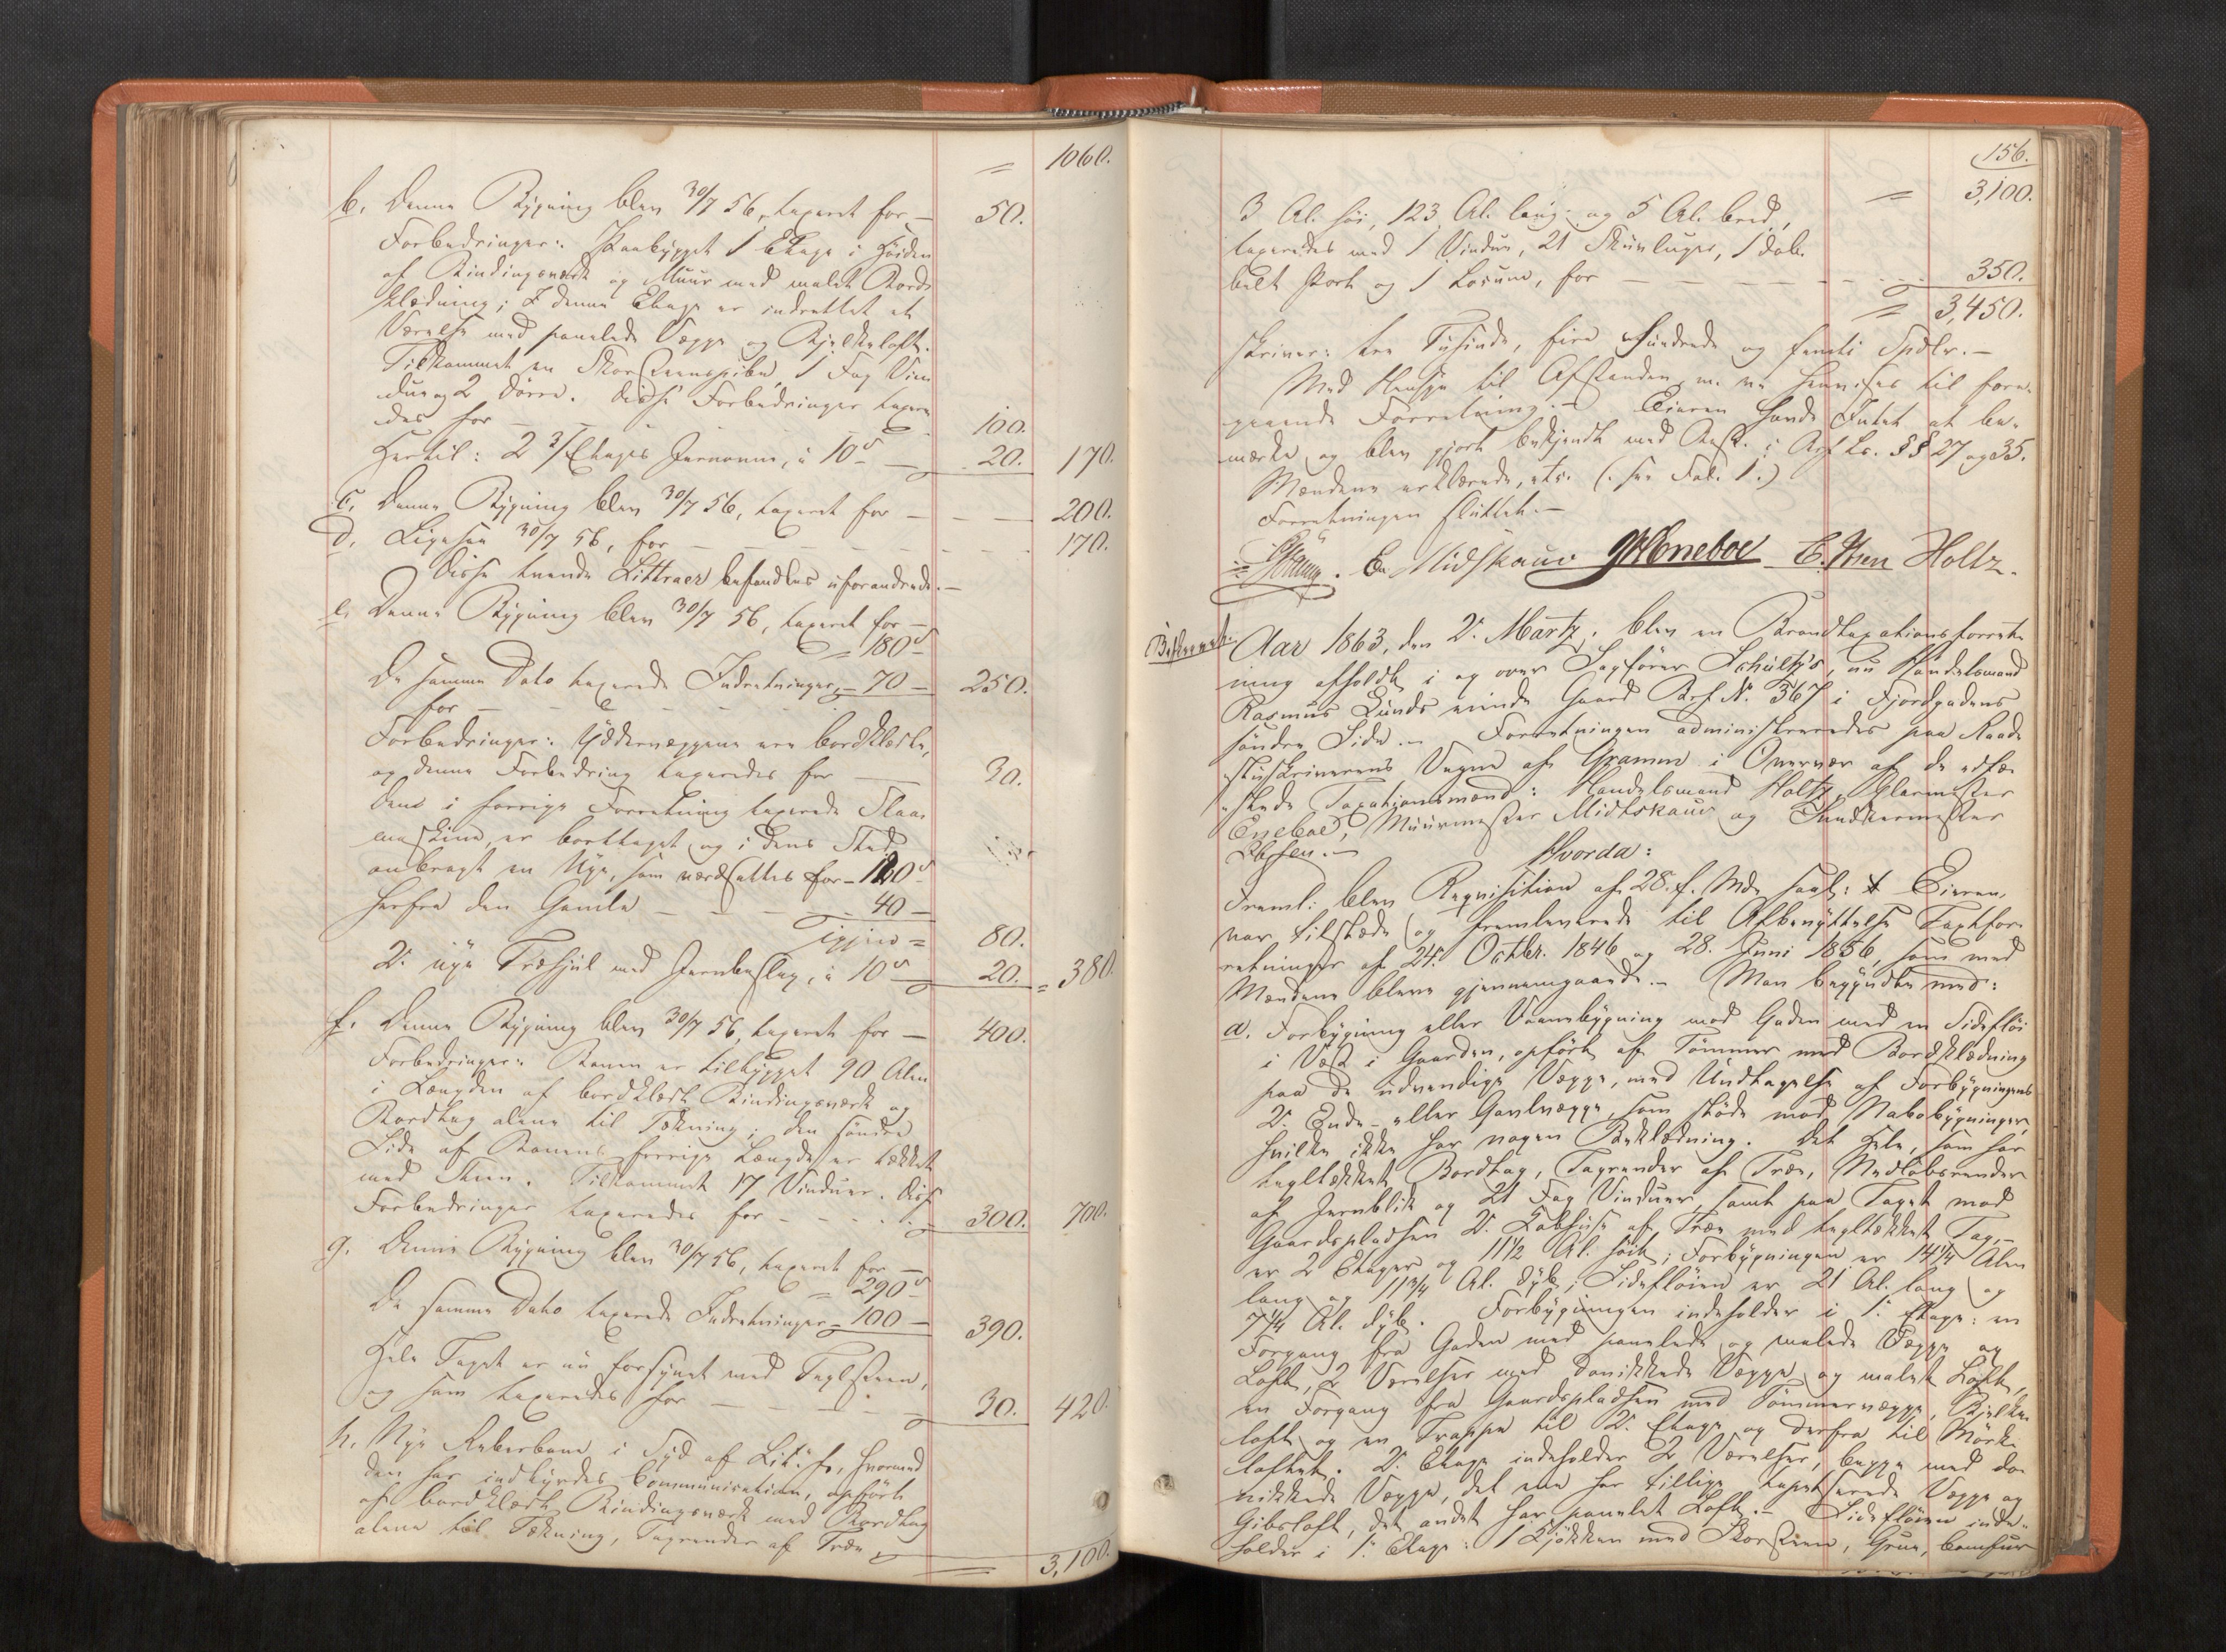 = 1060.
b. Denne Bygning blev 30/7 56, taxeret for — 50.
Forbedringer: Paabygget 1 Etage i Høiden
af Bindingsværk og Muur med malet Bord-
klædning; I denne Etage er indrettet et
Værelse med panelede Vægge og Bjelkeloft.
Tilkommet en Skorsteenspibe, 1 Fag Vin-
due og 2 Dørre. Disse Forbedringer taxere-
des for — 100.
Hertil: 2 3/Etages Jernovne, à 10 — 20. 170.
c. Denne Bygning blev 30/7 56, taxeret for — 200.
d. Ligesaa 30/7 56, for — 170.
Disse tvende Littraer befandtes uforandrede. —
e. Denne Bygning blev 30/7 56, taxeret for —
= 180
De samme Dato taxerede Indretninger, — 70 —
for — 250.
Forbedringer: Yddervæggene ere bordklædte,
og denne Forbedring taxeredes for — 30.
Den i forrige Forretning taxerede Slaae-
maskine, er borttaget og i dens Sted
anbragt en Nye, som værdsattes for — 120
herfra den Gamle — 40 —
igjen = 80.
2 nye Træhjul med Jernbeslag, à 10 — 20. = 380.
f. Denne Bygning blev 30/7 56, taxeret for — 400.
Forbedringer: Banen er tilbygget 90 Alen
i Længden af bordklædt Bindingsværk og
Bordtag alene til Tækning; den søndre
Side af Banens forrige Længde er tækket
med Steen. Tilkommet 17 Vinduer. Disse
Forbedringer taxeredes for — 300. 700.
g. Denne Bygning blev 30/7 56, taxeret for —
= 290
De samme Dato taxerede Indretninger — 100 — 390.
Hele Taget er nu forsynet med Taglsteen,
og som taxeredes for — 30. 420.
h. Nye Reberbane i Syd af Lit: f., hvormed
den har indbyrdes Communication, opført
af bordklædt Bindingsværk med Bordtag
alene til Tækning, Tagrender af Træ,
= 3,100.
156.
= 3,100.
3 Al. høi, 123 Al. lang og 5 Al. bred,
taxeredes med 1 Vindue, 21 Skuvluger, 1 dob-
belt Port og 1 Locum, for — 350.
= 3,450.
skriver: tre Tusinde, fire Hundrede og femti Spdlr. —
Med Hensyn til Afstanden m. v. henvises til fore-
gaaende Forretning. — Eieren havde Intet at be-
mærke og blev gjort bekjendt med Best. i Brf. Lr. §§ 27 og 35.
Mændene erklærede, etc. (: see Fol. 1 :)
Forretningen sluttet. —
E. Midskauv Eneboe E. Ibsen Holtz.
Aar 1863, den 2. Martz, blev en Brandtaxationsforret-
ning afholdt i og over Sagfører Schultz's, nu Handelsmand
Rasmus Lunds eiende Gaard Brf. No. 367 i Fjordgadens
søndre Side. — Forretningen administreredes paa Raad-
stuskriverens Vegne af Gramm i Overvær af de edfæ-
stede Taxationsmænd: Handelsmand Holtz, Glarmester
Eneboe, Muurmester Midtskauv og Snedkermester
Ibsen. —
Hvorda:
Freml. blev Requisition af 28. f. Md. Eieren,
var tilstede og fremleverede til Afbenyttelse Taxtfor-
retninger af 24. Octbr. 1846 og 28. Juni 1856, som med
Mændene bleve gjennemgaaede. — Man begyndte med:
a. Forbygning eller Vaanebygning mod Gaden med en Sidefløi
i Vest i Gaarden, opført af Tømmer med Bordklædning
paa de udvendige Vægge, med Undtagelse af Forbygningens
2. Ende- eller Gavlvægge, som støde mod Nabobygninger,
hvilke ikke har nogen Beklædning. Det Hele, som har
tagltækket Bordtag, Tagrender af Træ, Nedløbsrender
af Jernblik og 21 Fag Vinduer, samt paa Taget mod
Gaardspladsen 2. Labhuse af Træ med tagltækket Tag, —
er 2 Etager og 11 1/2 Al. høit; Forbygningen er 14 1/4 Alen
lang og 11 3/4 Al. dyb; Sidefløien er 21 Al. lang og
7 1/4 Al. dyb. Forbygningen indeholder i 1. Etage: en
Forgang fra Gaden med panelede og malede Vægge og
Loft, 2 Værelser med donikkede Vægge og malet Loft,
en Forgang fra Gaardspladsen med Tømmervægge, Bjelke-
loft og en Trappe til 2. Etage og derfra til Mørke-
loftet. 2. Etage indeholder 2 Værelser, begge med do-
nikkede Vægge, det ene har tillige tapetserede Vægge og
Gibsloft, det andet har panelet Loft. — Sidefløien inde-
holder i 1. Etage: 1 Kjøkken med Skorsteen, Grue, Comfur